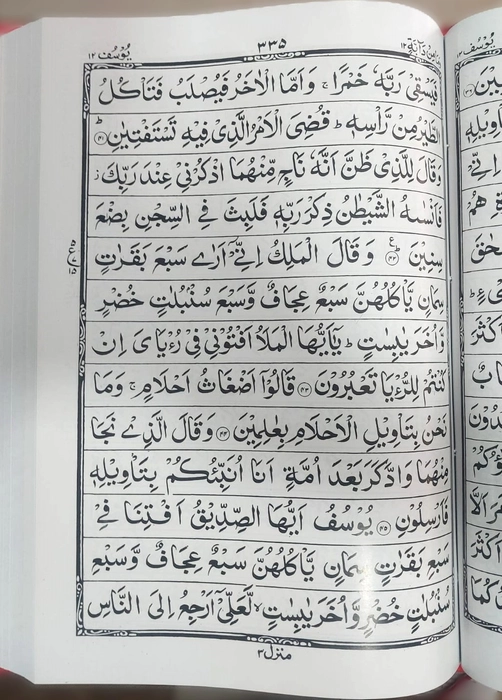 يُوْسُف ١٢
٣٣٥
وما من دآبة ١٢
فَيَسْقِىْ رَبَّهٗ خَمْرًا ۚ وَاَمَّا الْاٰخَرُ فَيُصْلَبُ فَتَاْكُلُ
الطَّيْرُ مِنْ رَّاْسِهٖ ؕ قُضِىَ الْاَمْرُ الَّذِىْ فِيْهِ تَسْتَفْتِيٰنِ ؕ ﴿۴۱﴾
وَقَالَ لِلَّذِىْ ظَنَّ اَنَّهٗ نَاجٍ مِّنْهُمَا اذْكُرْنِىْ عِنْدَ رَبِّكَ ز
فَاَنْسٰىهُ الشَّيْطٰنُ ذِكْرَ رَبِّهٖ فَلَبِثَ فِى السِّجْنِ بِضْعَ
سِنِيْنَ ﴿۴۲﴾ ع وَقَالَ الْمَلِكُ اِنِّىْۤ اَرٰى سَبْعَ بَقَرٰتٍ
سِمَانٍ يَّاْكُلُهُنَّ سَبْعٌ عِجَافٌ وَّسَبْعَ سُنْۢبُلٰتٍ خُضْرٍ
وَّاُخَرَ يٰبِسٰتٍ ؕ يٰۤاَيُّهَا الْمَلَاُ اَفْتُوْنِىْ فِىْ رُءْيَاىَ اِنْ
كُنْتُمْ لِلرُّءْيَا تَعْبُرُوْنَ ﴿۴۳﴾ قَالُوْۤا اَضْغَاثُ اَحْلَامٍ ۚ وَمَا
نَحْنُ بِتَاْوِيْلِ الْاَحْلَامِ بِعٰلِمِيْنَ ﴿۴۴﴾ وَقَالَ الَّذِىْ نَجَا
مِنْهُمَا وَادَّكَرَ بَعْدَ اُمَّةٍ اَنَا اُنَبِّئُكُمْ بِتَاْوِيْلِهٖ
فَاَرْسِلُوْنِ ﴿۴۵﴾ يُوْسُفُ اَيُّهَا الصِّدِّيْقُ اَفْتِنَا فِىْ
سَبْعِ بَقَرٰتٍ سِمَانٍ يَّاْكُلُهُنَّ سَبْعٌ عِجَافٌ وَّسَبْعِ
سُنْۢبُلٰتٍ خُضْرٍ وَّاُخَرَ يٰبِسٰتٍ ۙ لَّعَلِّىْۤ اَرْجِعُ اِلَى النَّاسِ
منزل ٣